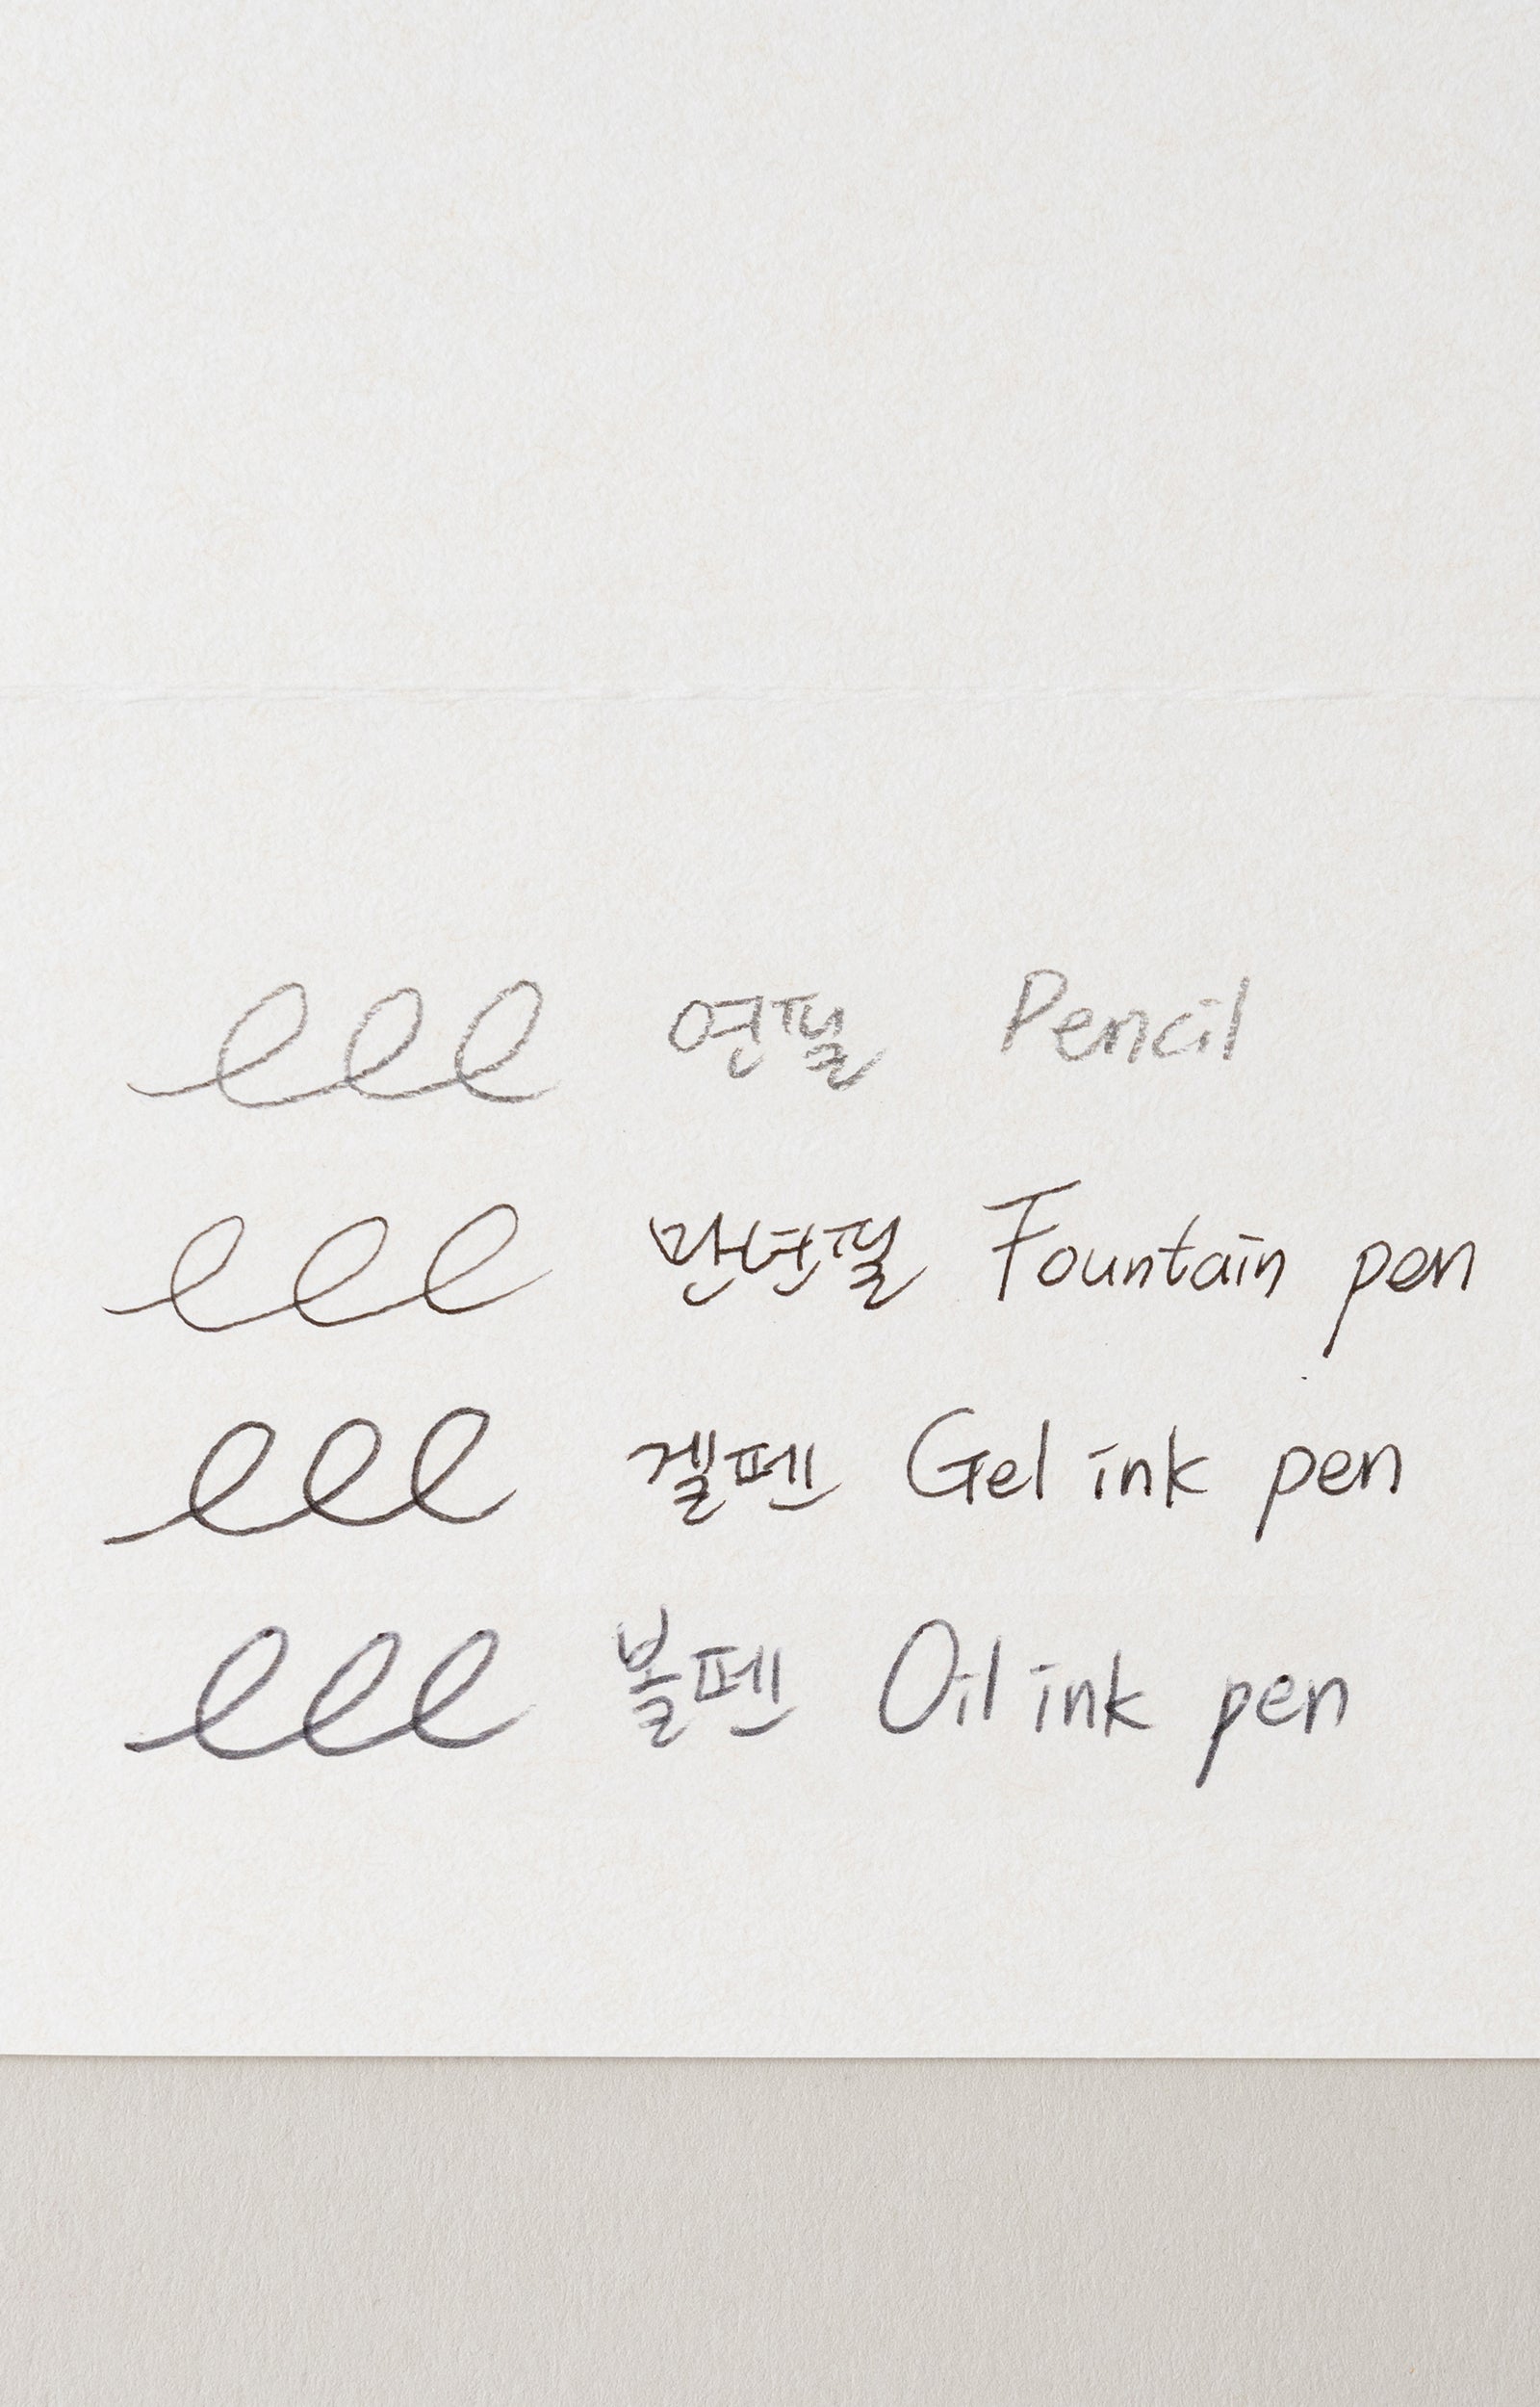 lll 연필 Pencil
lll 만년필 Fountain pen
lll 겔펜 Gel ink pen
lll 볼펜 Oil ink pen